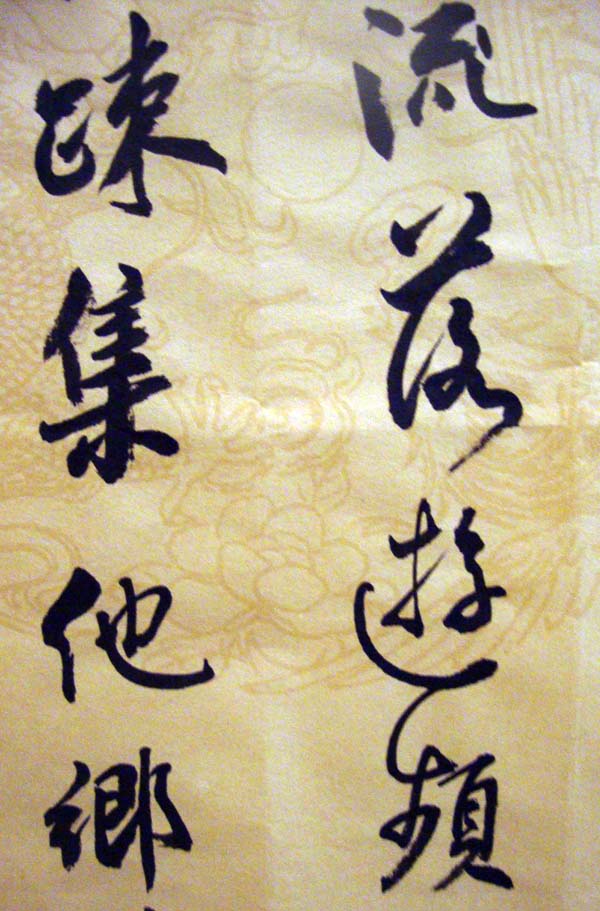 流落遊頻
踈集他鄉